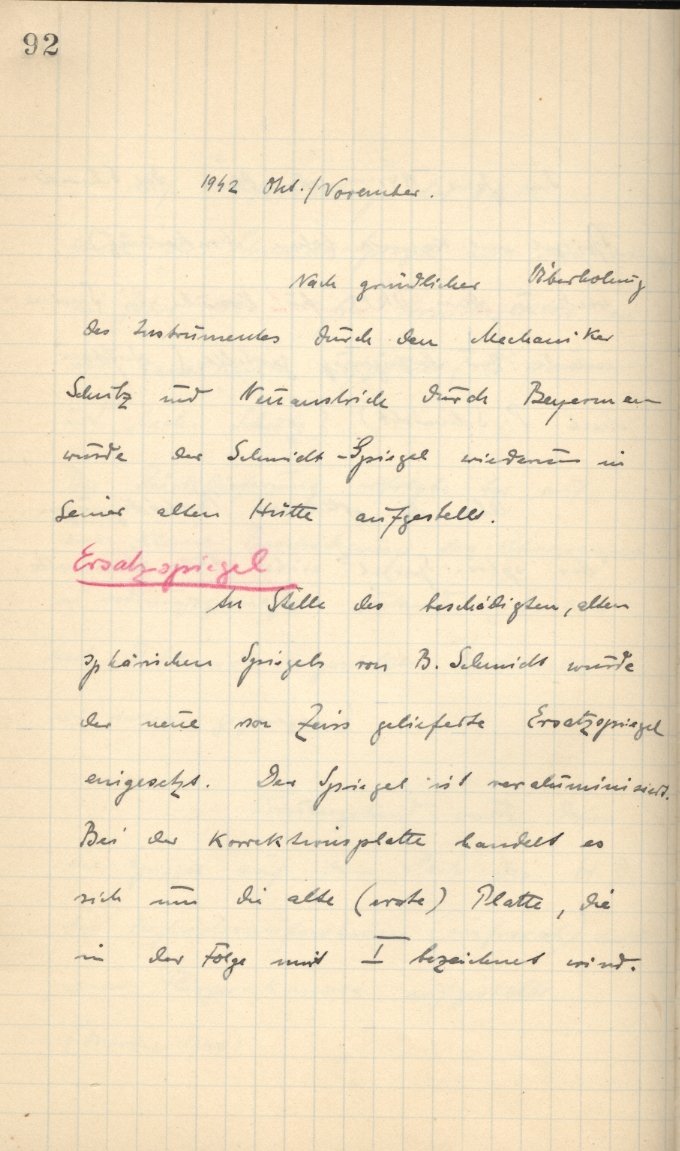 92
1942 Okt./November.
Nach gründlicher Überholung
des Instrumentes durch den Mechaniker
Schütz und Neuanstrich durch Beyermann
wurde der Schmidt-Spiegel wiederum in
seiner alten Hütte aufgestellt.
Ersatzspiegel
An Stelle des beschädigten, alten
sphärischen Spiegels von B. Schmidt wurde
der neue von Zeiss gelieferte Ersatzspiegel
eingesetzt. Der Spiegel ist veraluminisiert.
Bei der Korrektionsplatte handelt es
sich um die alte (erste) Platte, die
in der Folge mit I bezeichnet wird.